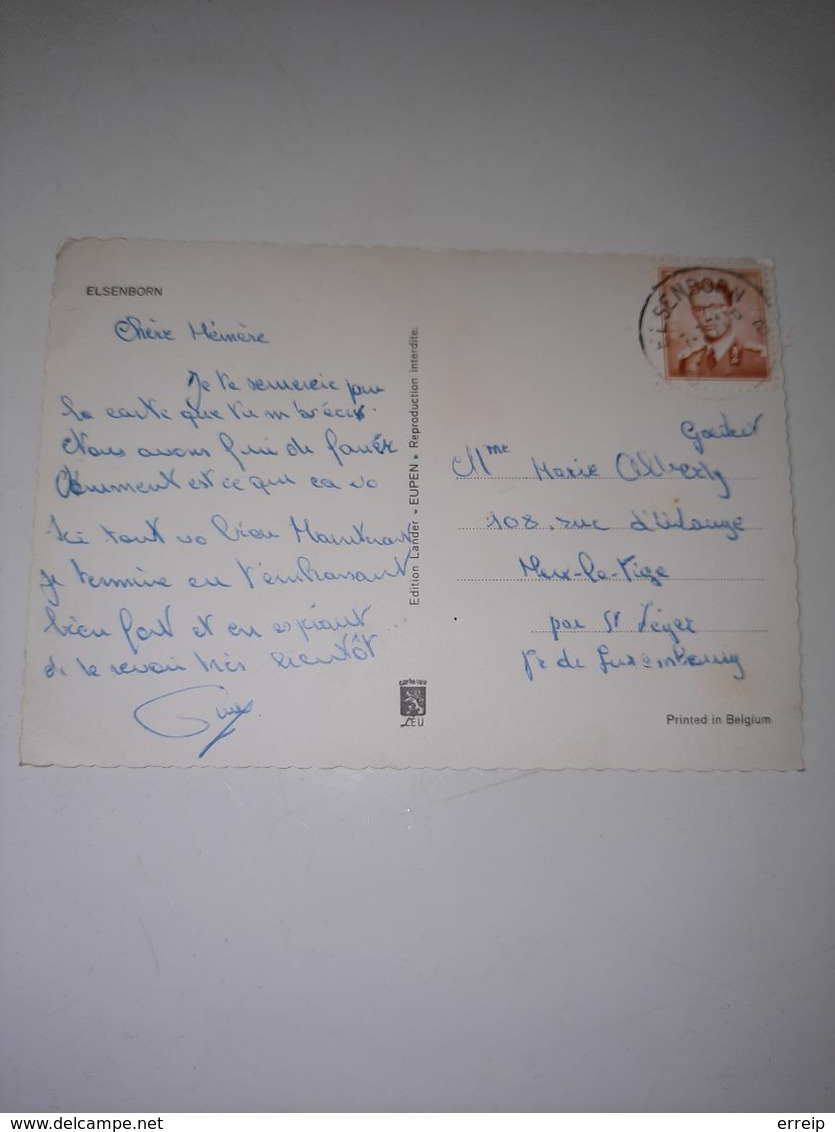 ELSENBORN
Chère Mémère
Je te remercie pour
la carte que tu m'as écrit.
Nous avons fini de faner
Comment est ce que ca va
Ici tout va bien Maintenant
je termine en t'embrassant
bien fort et en espérant
de te revoir très bientôt
Guy
Edition Lander - EUPEN • Reproduction interdite.
LEU
ELSENBORN
Mme Marie Alberty
108, rue d'Udange
Meix-le-Tige
par St Léger
Pr de Luxembourg
Printed in Belgium
delcampe.net
erreip